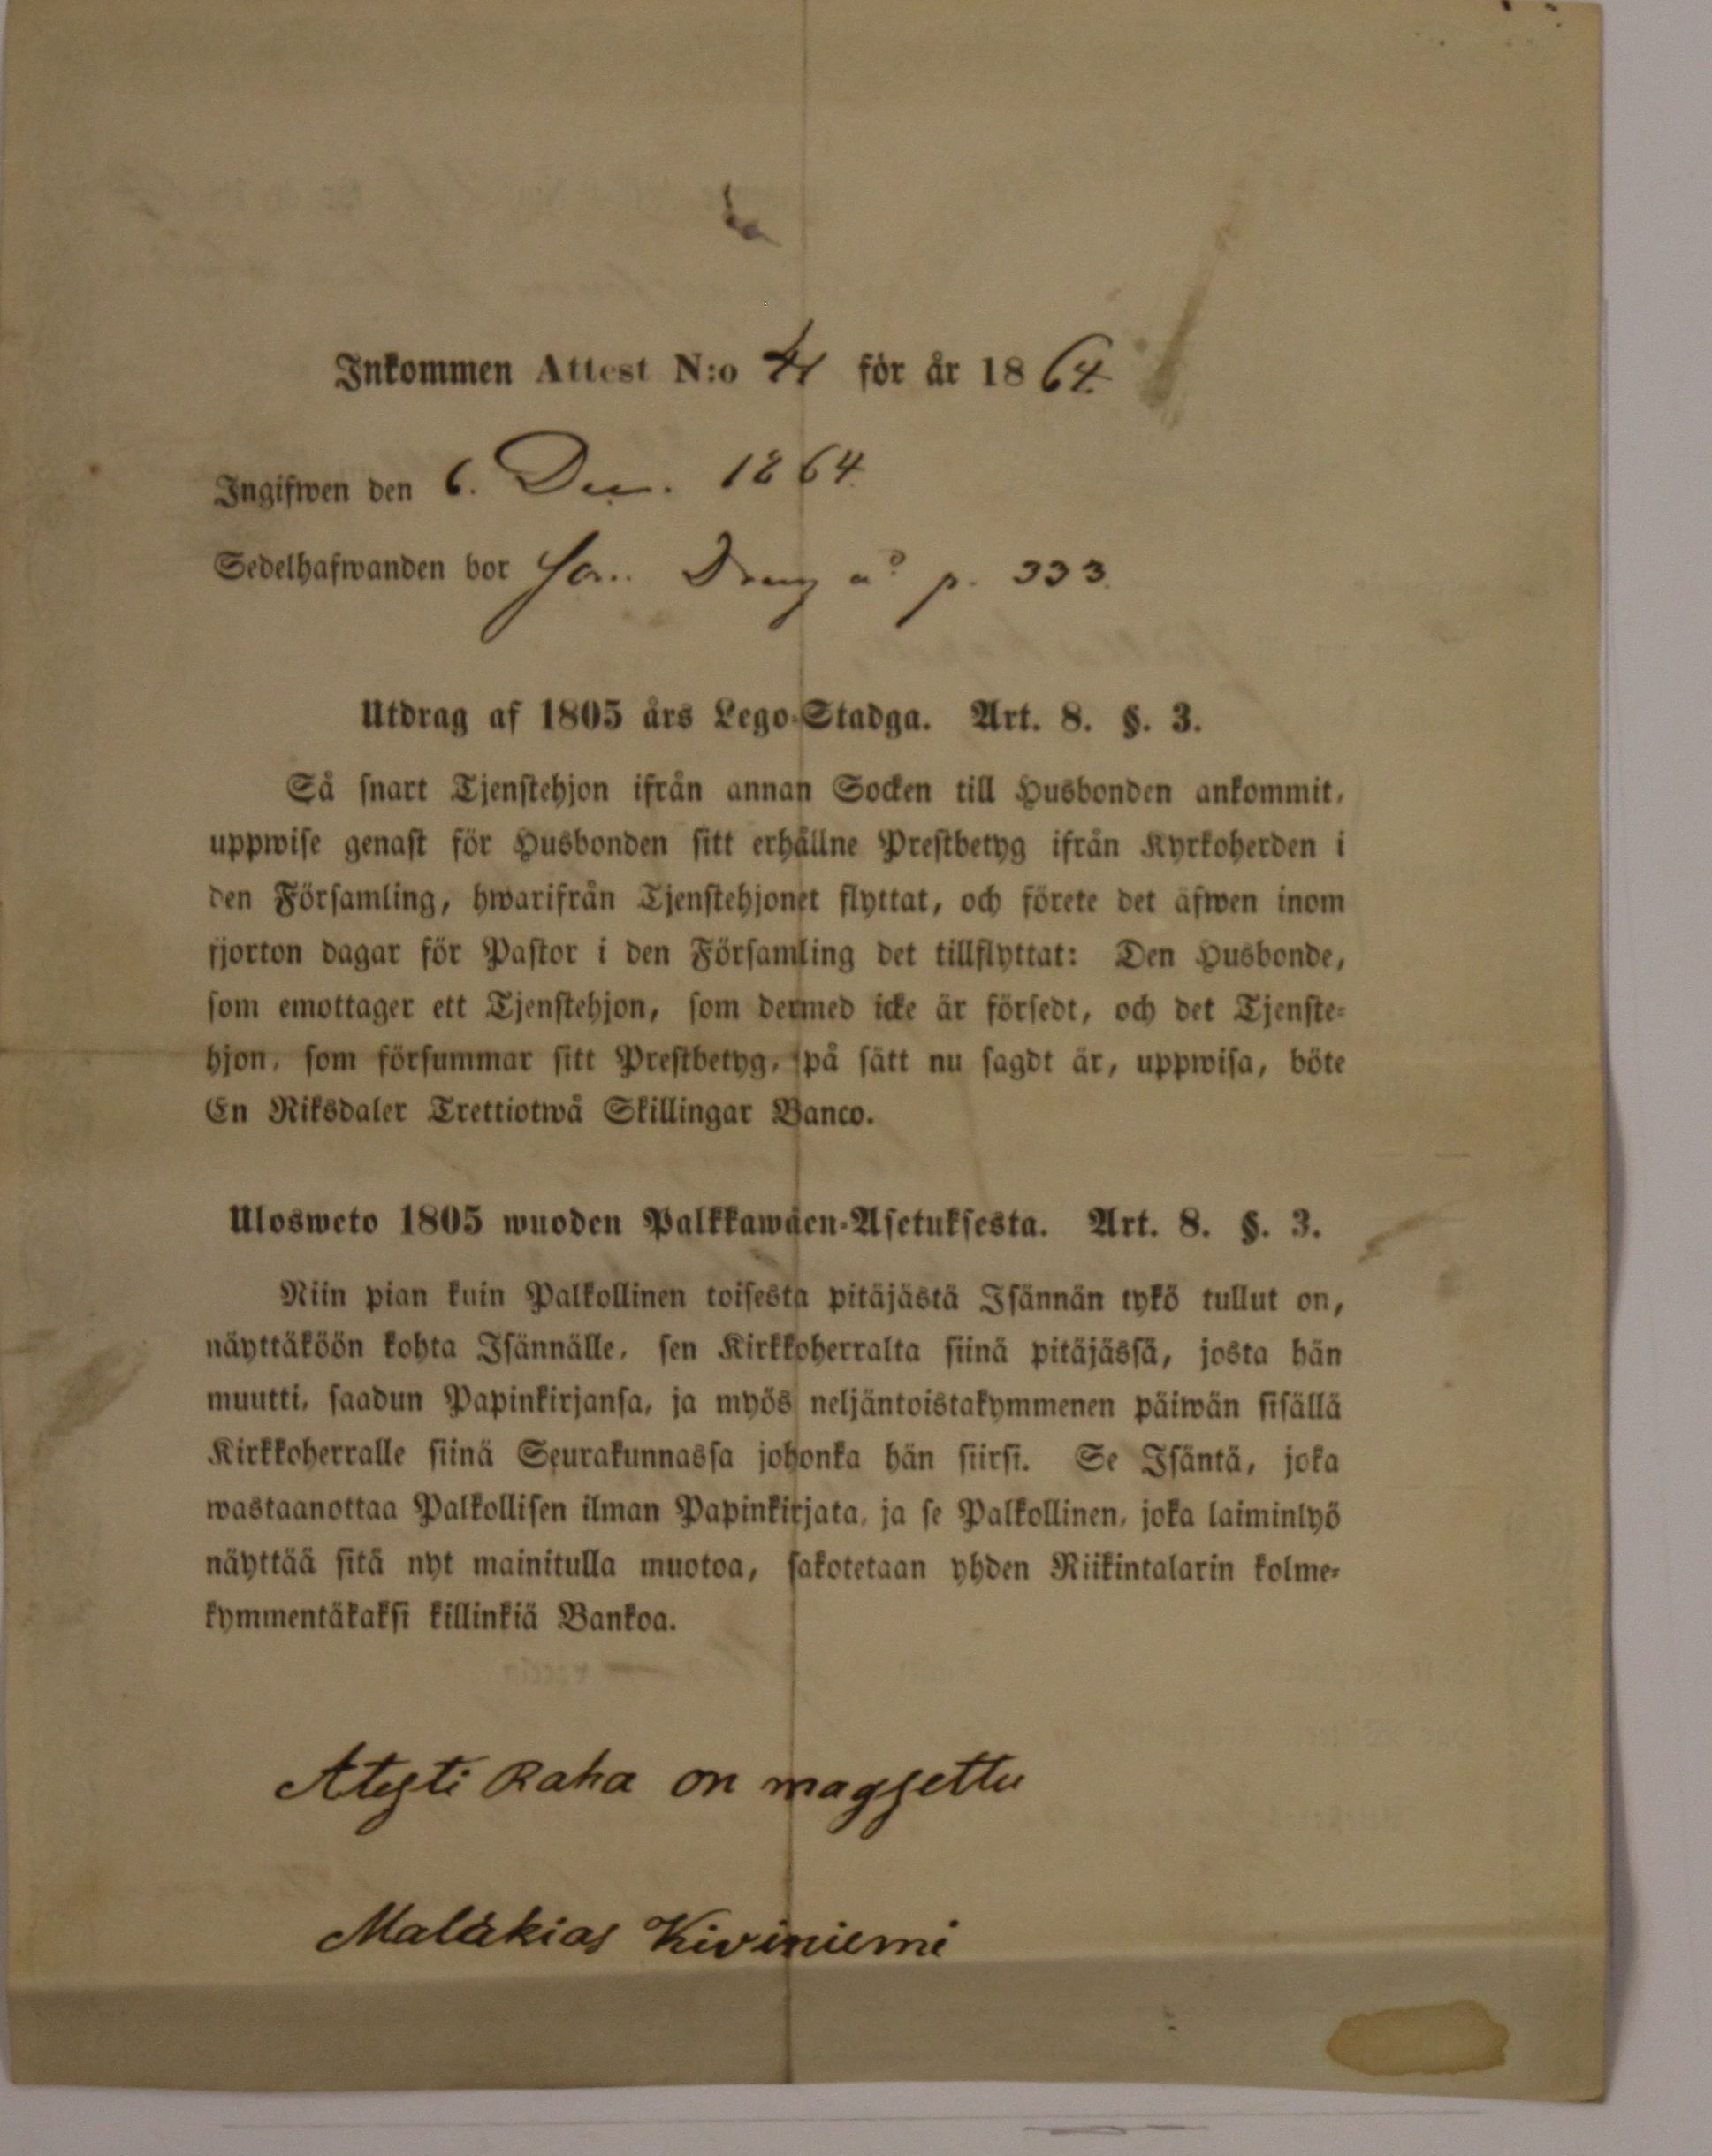 Inkommen Attest N:o 41 för år 1864.
Ingifwen den 6. Dec. 1864.
Sedelhafwanden bor Drag p. 333.
Utdrag af 1805 års Lego-Stadga. Art. 8. §. 3.
Så snart Tjenstehjon ifrån annan Socken till Husbonden ankommit,
uppwise genast för Husbonden sitt erhållne Prestbetyg ifrån Kyrkoherden i
den Församling, hwarifrån Tjenstehjonet flyttat, och förete det äfwen inom
fjorton dagar för Pastor i den Församling det tillflyttat: Den Husbonde,
som emottager ett Tjenstehjon, som dermed icke är försedt, och det Tjenste-
hjon, som försummar sitt Prestbetyg, på sätt nu sagdt är, uppwisa, böte
En Riksdaler Trettiotwå Skillingar Banco.
Ulosweto 1805 wuoden Palkkawäen-Asetuksesta. Art. 8. §. 3.
Niin pian kuin Palkollinen toisesta pitäjästä Isännän tykö tullut on,
näyttäköön kohta Isännälle, sen Kirkkoherralta siinä pitäjässä, josta hän
muutti, saadun Papinkirjansa, ja myös neljäntoistakymmenen päiwän sisällä
Kirkkoherralle siinä Seurakunnassa johonka hän siirsi. Se Isäntä, joka
wastaanottaa Palkollisen ilman Papinkirjata, ja se Palkollinen, joka laiminlyö
näyttää sitä nyt mainitulla muotoa, sakotetaan yhden Riikintalarin kolme-
kymmentäkaksi killinkiä Bankoa.
Atesti Raha on magsettu
Malakias Kiviniemi